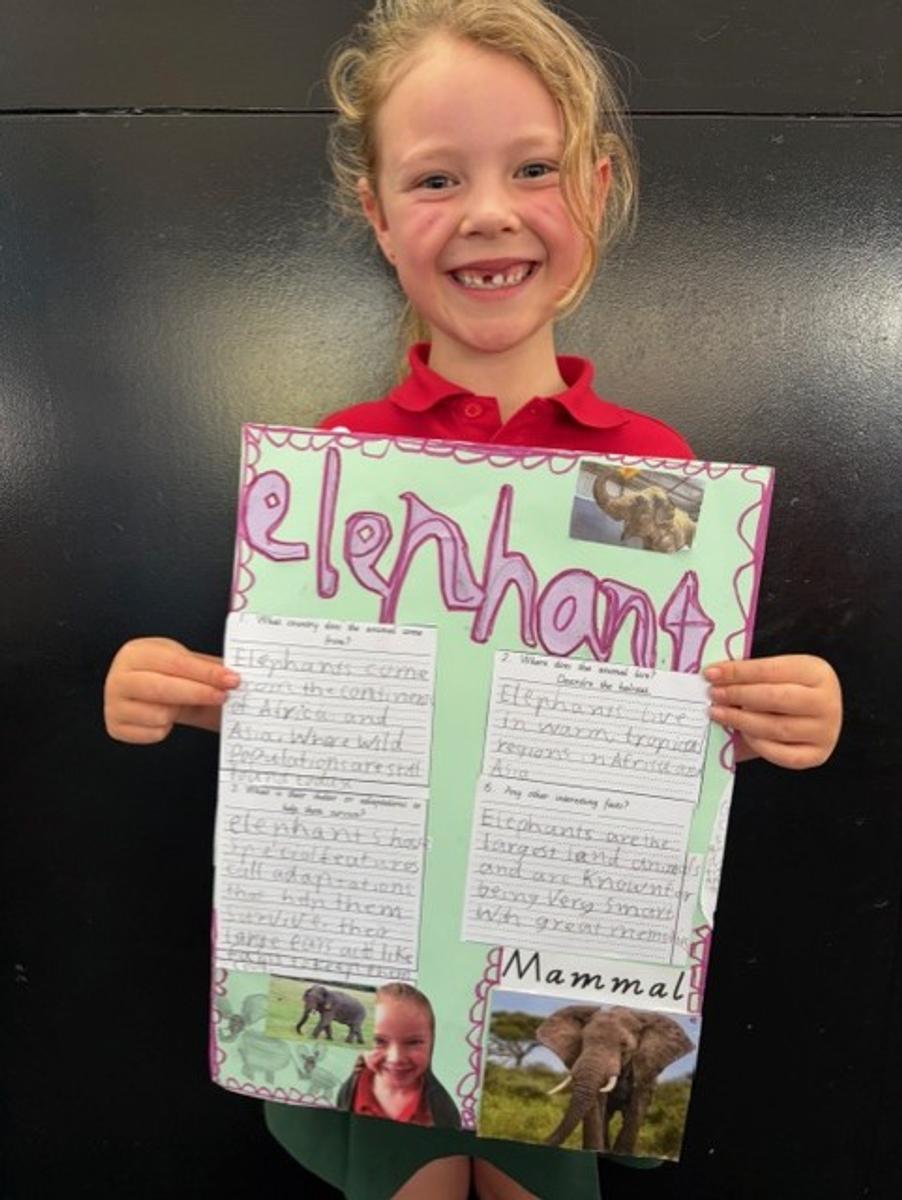 elephant
1. What country does the animal come
from?
Elephants come
from the continent
of Africa and
Asia. Where wild
Populations are still
found today
2. Where does the animal live?
Describe the habitat.
Elephants live
in warm tropical
regions in Africa and
Asia
3. What is their or adaptations to
help them survive?
elephants have
special features
call adaptations
that help them
survive. their
large ears act like
6. Any other interesting facts?
Elephants are the
largest land animals
and are known for
being very smart
with great
Mammal